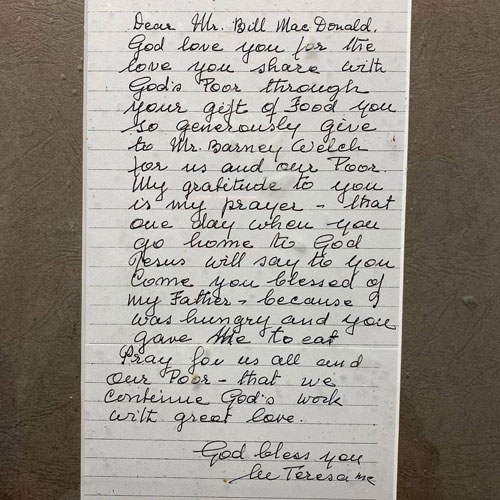 Dear Mr. Bill Mac Donald,
God love you for the
love you share with
God's Poor through
your gift of Food you
so generously give
to Mr. Barney Welch
for us and our Poor.
My gratitude to you
is my prayer - that
one day when you
go home to God
Jesus will say to you
Come you blessed of
my Father - because I
was hungry and you
gave Me to eat
Pray for us all and
our Poor - that we
continue God's work
with great love.
God bless you
lee Teresa mc